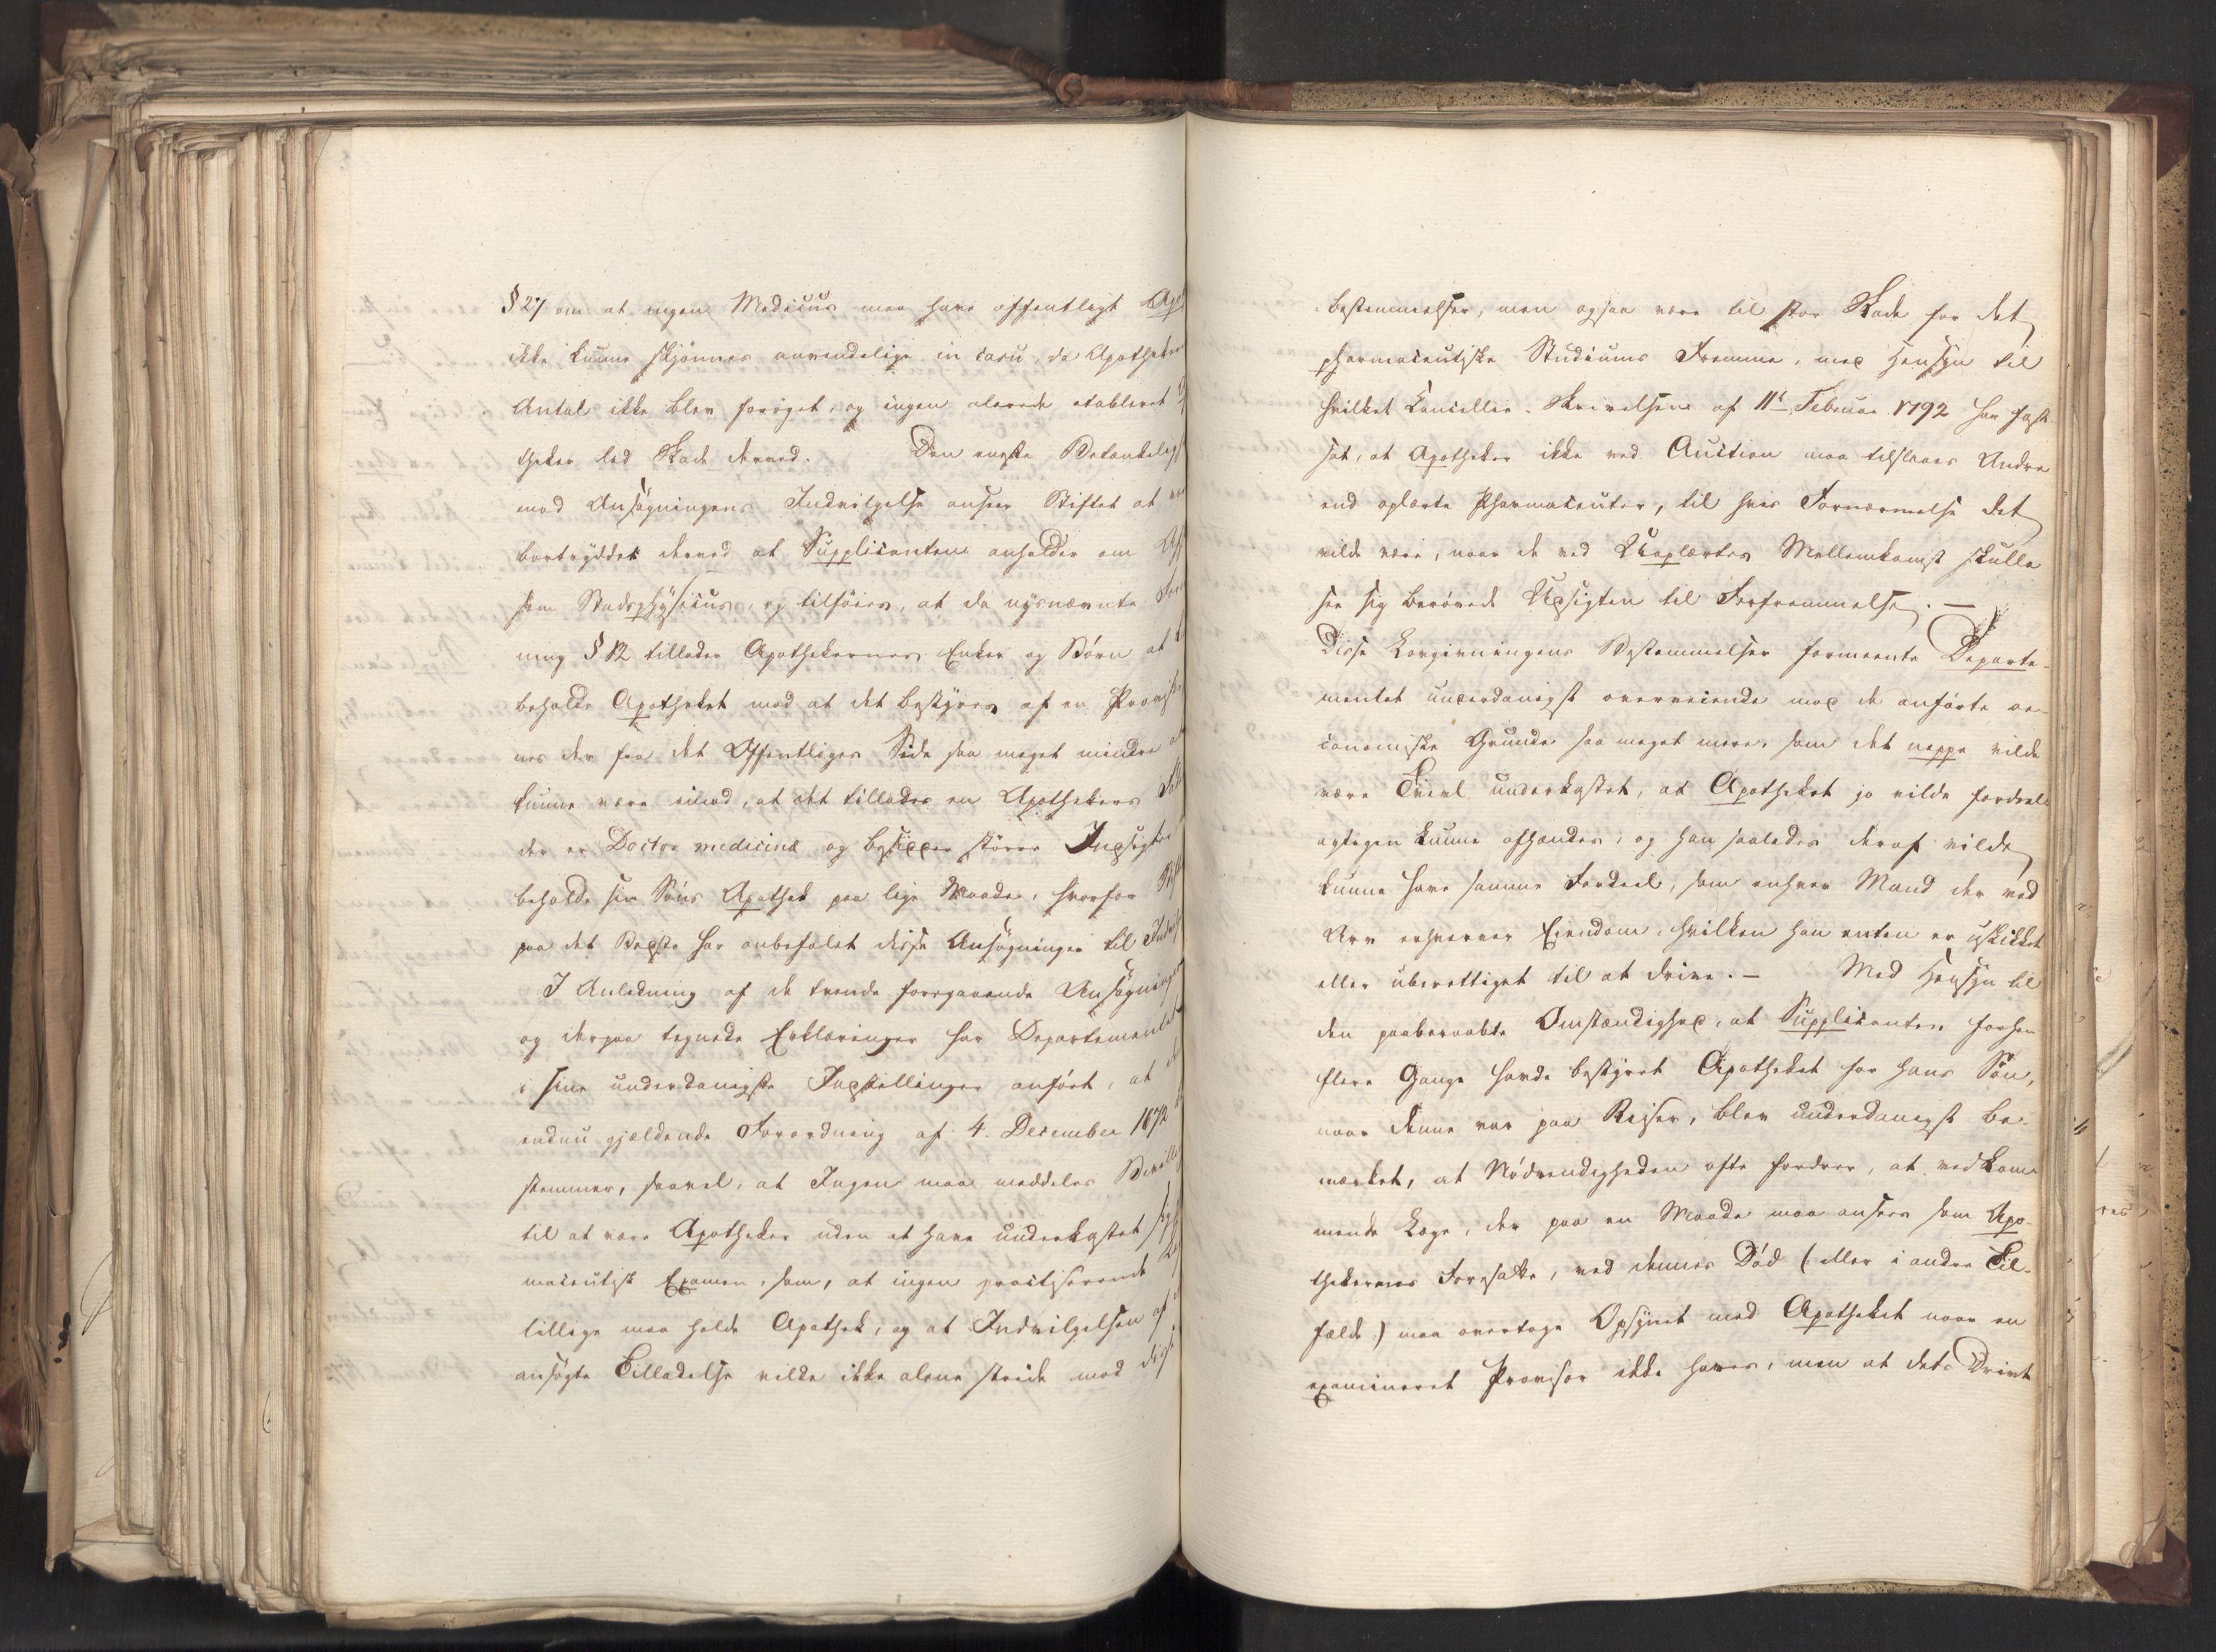 § 27 om at ingen Medicus maa have offentligt Apo
ikke kunne skjönnes anvendelige in casu, da Apotheker
Antal ikke blev foröget, og ingen alerede etableret
theker led Skade derved. Den eneste Betænkelig
mod Ansögningens Indvilgelse anseer Stiftet at
bortryddet derved at Supplicanten anholder om Afs
som Stadsphysicus, og tilföier, at da nysnævnte For
ning § 12 tillader Apothekernes Enker og Börn at
beholde Apotheket mod at det bestyres af en Provis
nes der fra det Offentliges Side saa meget mindre
kunne være imod, at det tillades en Apothekers
der er Doctor medicinæ og besidder större Indsigter
beholde sin Söns Apothek paa lige Maade, hvorfor
paa det Bedste har anbefalet disse Ansögninger til Indvil
I Anledning af de tvende foregaaende Ansögninger
og derpaa tegnede Erklæringer har Departementet
i sine underdanigste Indstillinger anfört, at
endnu gjældende Forordning af 4. December 1672
stemmer, saavel, at Ingen maa meddeles Bevilling
til at være Apotheker uden at have underkastet sig
maceutisk Examen, som, at ingen practiserende
tillige maa holde Apothek, og at Indvilgelsen af
ansögte Tilladelse vilde ikke alene stride mod disse
Bestemmelser, men ogsaa være til stor Skade for det
pharmaceutiske Studiums Fremme, med Hensyn til
hvilket Cancellie-Skrivelsen af 11te Februar 1792 har fast-
sat, at Apotheker ikke ved Auction maa tilslaaes Andre
end oplærte Pharmaceuter, til hvis Fornærmelse det
vilde være, naar de ved Uoplærtes Mellemkomst skulle
see sig berövede Udsigten til Forfremmelse. —
Disse Lovgivningens Bestemmelser formeente Departe-
mentet underdanigst overveiende mod de anförte oe-
conomiske Grunde saa meget mere, som det neppe vilde
være Tvivl underkastet, at Apotheket jo vilde fordeel-
agtigen kunne afhændes, og han saaledes deraf vilde
kunne have samme Fordeel, som enhver Mand der ved
Arv erhverver Eiendom, hvilken han enten er uskikket
eller uberettiget til at drive. — Med Hensyn til
den paaberaabte Omstændighed, at Supplicanten forhen
flere Gange havde bestyret Apotheket for hans Sön,
naar denne var paa Reiser, blev underdanigst be-
mærket, at Nödvendigheden ofte fordrer, at vedkom-
mende Læge, der paa en Maade maa ansees som Apo-
thekernes Foresatte, ved dennes Död (eller i andre Til-
fælde) maa overtage Opsynet med Apotheket naar en
examineret Provisor ikke haves, men at dets Drivt